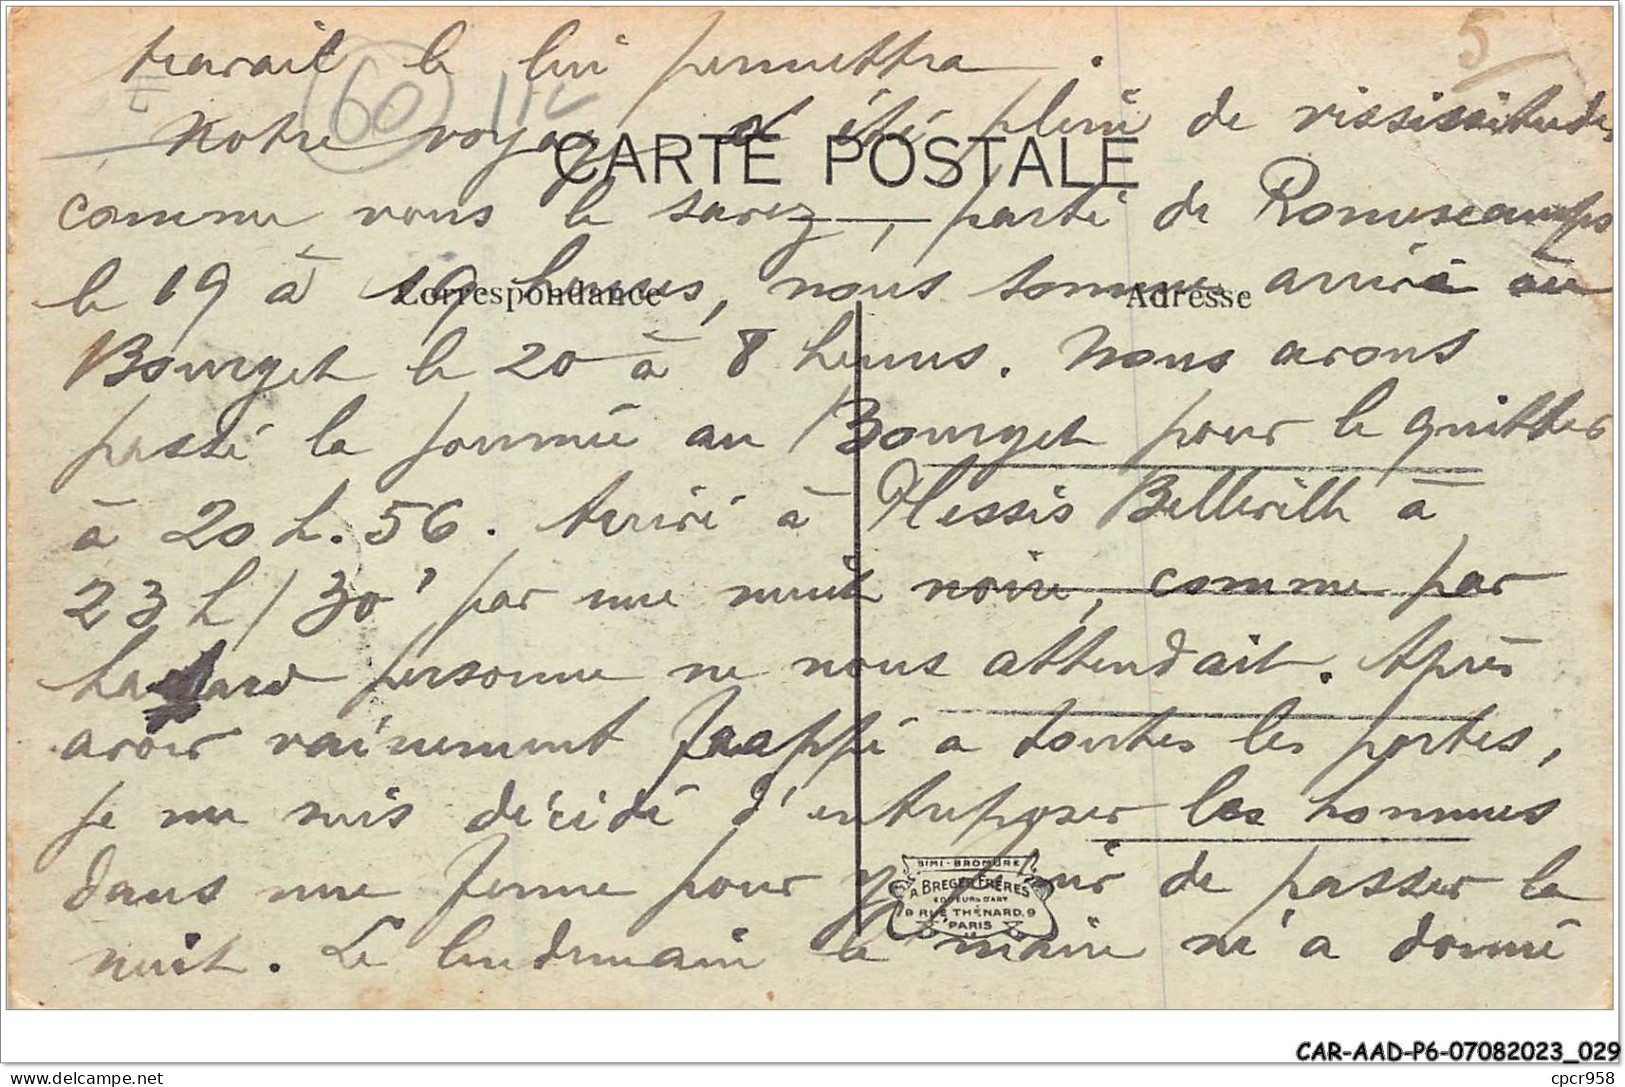 travail le lui permettra .
60
5
Notre voyage a été plein de vississitudes
CARTE POSTALE
comme vous le savez, parti de Romescamps
le 19 à 19 heures, nous sommes arrivé au
Correspondance
Adresse
Bourget le 20 à 8 heures. Nous avons
passé la journée au Bourget pour le quitter
à 20 h. 56. Arrivé à Plessis Belleville à
23 h / 30' par une nuit noire, comme par
hasard personne ne nous attendait. Après
avoir vainement frappé a toutes les portes,
je me suis décidé d'entreposer les hommes
dans une ferme pour y finir de passer la
SIMI-BROMURE
A. BREGER FRÈRES
EDITEURS D'ART
9 RUE THÉNARD, 9
PARIS
nuit. Le lendemain le maire m'a donné
CAR-AAD-P6-07082023_029
delcampe.net
cpcr958